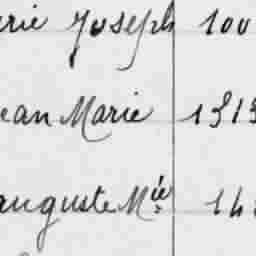 rie Joseph 100
ean Marie 1313
auguste Mie 14